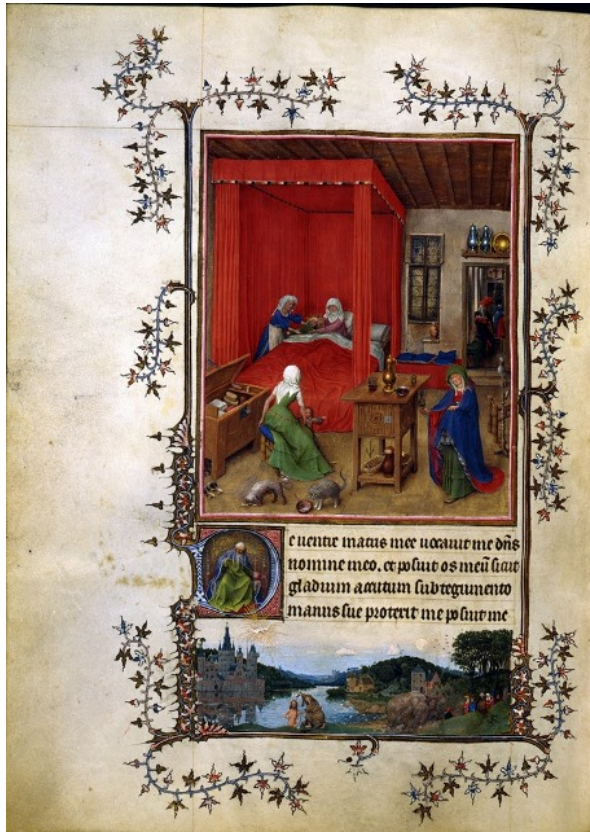 e ventre matris mee vocavit me dñs
nomine meo. et posuit os meũ sicut
gladium accutum sub tegumento
manus sue proterit me posuit me